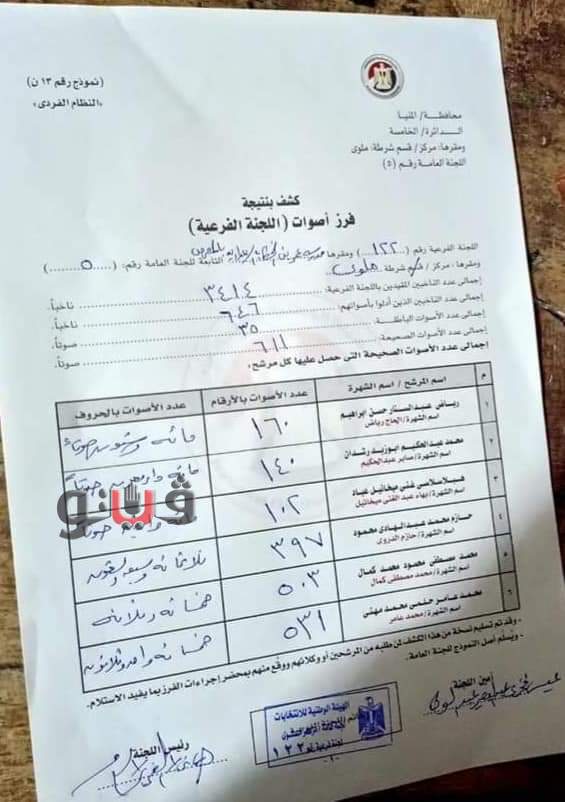 (نموذج رقم ١٣ ن)
«النظام الفردى»
محافظة/ المنيا
الدائرة/ الخامسة
ومقرها: مركز/ قسم شرطة: ملوى
اللجنة العامة رقم (٥)
كشف بنتيجة
فرز أصوات (اللجنة الفرعية)
اللجنة الفرعية رقم (١٢٢) ومقرها التابعة للجنة العامة رقم: (٥)
ومقرها: مركز / قسم شرطة ملوى
إجمالى عدد الناخبين المقيدين باللجنة الفرعية: ٣٤١٤ ناخباً.
إجمالى عدد الناخبين الذين أدلوا بأصواتهم: ٦٤٦ ناخباً.
إجمالى عدد الأصوات الباطلة: ٣٥ صوتاً.
إجمالى عدد الأصوات الصحيحة: ٦١١ صوتاً.
إجمالى عدد الأصوات الصحيحة التى حصل عليها كل مرشح:
م اسم المرشح / اسم الشهرة عدد الأصوات بالأرقام عدد الأصوات بالحروف
١ رياض عبدالستار حسن ابراهيم ١٦٠ مائه وستون صوتاً
اسم الشهرة/ الحاج رياض
٢ محمد عبدالحكيم ابوزيد رشدان ١٤٠ مائه واربعون صوتاً
اسم الشهرة/ صابر عبدالحكيم
٣ هيلاسلاسى غنى ميخائيل عياد ١٠٢
اسم الشهرة/ بهاء عبد الغنى ميخائيل
٤ حازم محمد عبدالهادى محمود ٣٩٧ ثلاثمائه وسبعه وتسعون
اسم الشهرة/ حازم الدروى
٥ محمد مصطفى محمود محمد كمال ٥٠٣ خمسائه وثلاثه
اسم الشهرة/ محمد مصطفى كمال
٦ محمد عامر حلمى محمد مهنى ٥٣١ خمسائه واحد وثلاثون
اسم الشهرة/ محمد عامر
ڤيتو
- وقد تم تسليم نسخة من هذا الكشف لمن طلبه من المرشحين أو وكلائهم ووقع منهم بمحضر إجراءات الفرز بما يفيد الاستلام.
- ويُسلم أصل النموذج للجنة العامة.
أمين اللجنة/
رئيس اللجنة/
الهيئة الوطنية للانتخابات
لجنة فرعية رقم ١٢٢